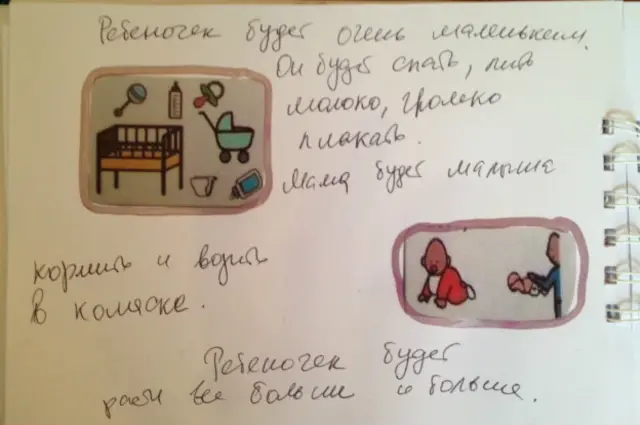 Ребеночек будет очень маленьким.
Он будет спать, пить
молоко, громко
плакать.
Мама будет малыша
кормить и водить
в коляске.
Ребеночек будет
расти все больше и больше.